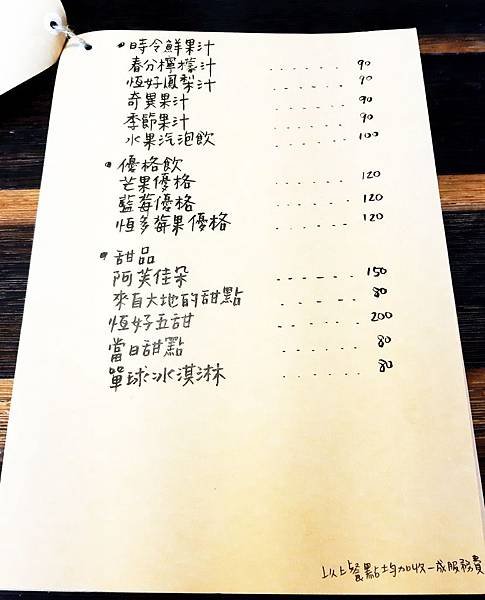 •時令鮮果汁
春分檸檬汁 ...... 90
恆好鳳梨汁 ...... 90
奇異果汁 ...... 90
季節果汁 ...... 90
水果汽泡飲 ...... 100
•優格飲
芒果優格 ...... 120
藍莓優格 ...... 120
恆多莓果優格 ...... 120
•甜品
阿芙佳朵 ...... 150
來自大地的甜點 ...... 80
恆好五甜 ...... 200
當日甜點 ...... 80
單球冰淇淋 ...... 80
以上餐點均加收一成服務費